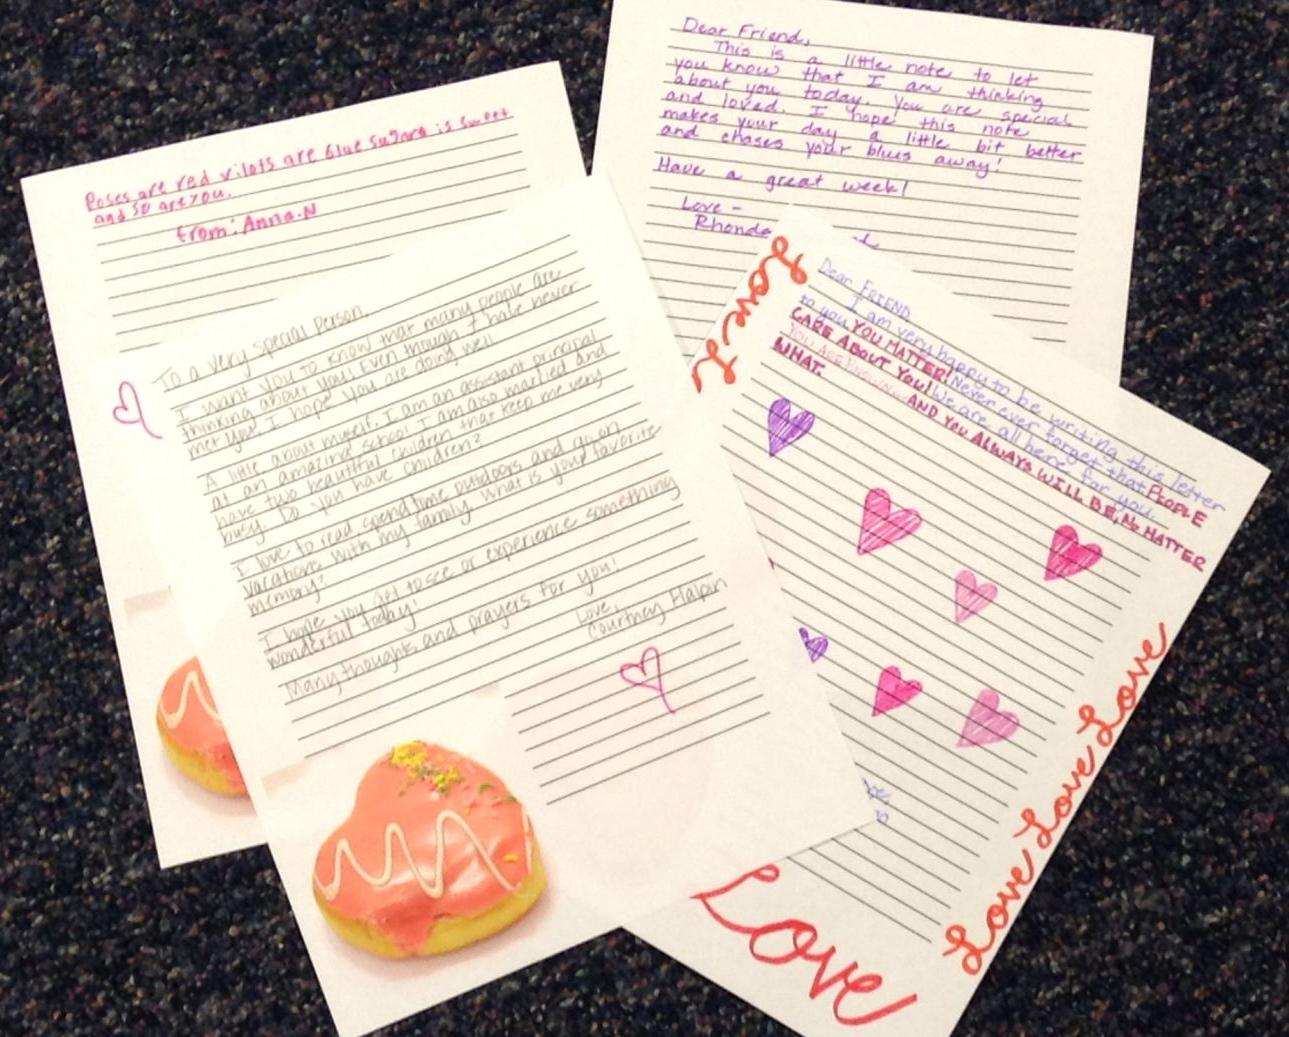 Roses are red vilots are blue sugare is sweet
and so are you.
from: Anna.N
Dear Friend,
This is a little note to let
you know that I am thinking
about you today. You are special
and loved. I hope this note
makes your day a little bit better
and chases your blues away!
Have a great week!
Love -
Rhonda
To a very special person,
I want you to know that many people are
thinking about you! Even though I have never
met you, I hope you are doing well.
A little about myself. I am an assistant principal
at an amazing school. I am also married and
have two beautiful children that keep me very
busy. Do you have children?
I love to read, spend time outdoors and go on
vacations with my family. What is your favorite
memory?
I hope you get to see or experience something
wonderful today!
Many thoughts and prayers for you!
Love,
Courtney Halpin
Love
Dear FRIEND
I am very happy to be writing this letter
to you. YOU MATTER! Never ever forget that PEOPLE
CARE ABOUT YOU! We are all here for you.
YOU ARE AND YOU ALWAYS WILL BE, No MATTER
WHAT.
Love Love Love
Love